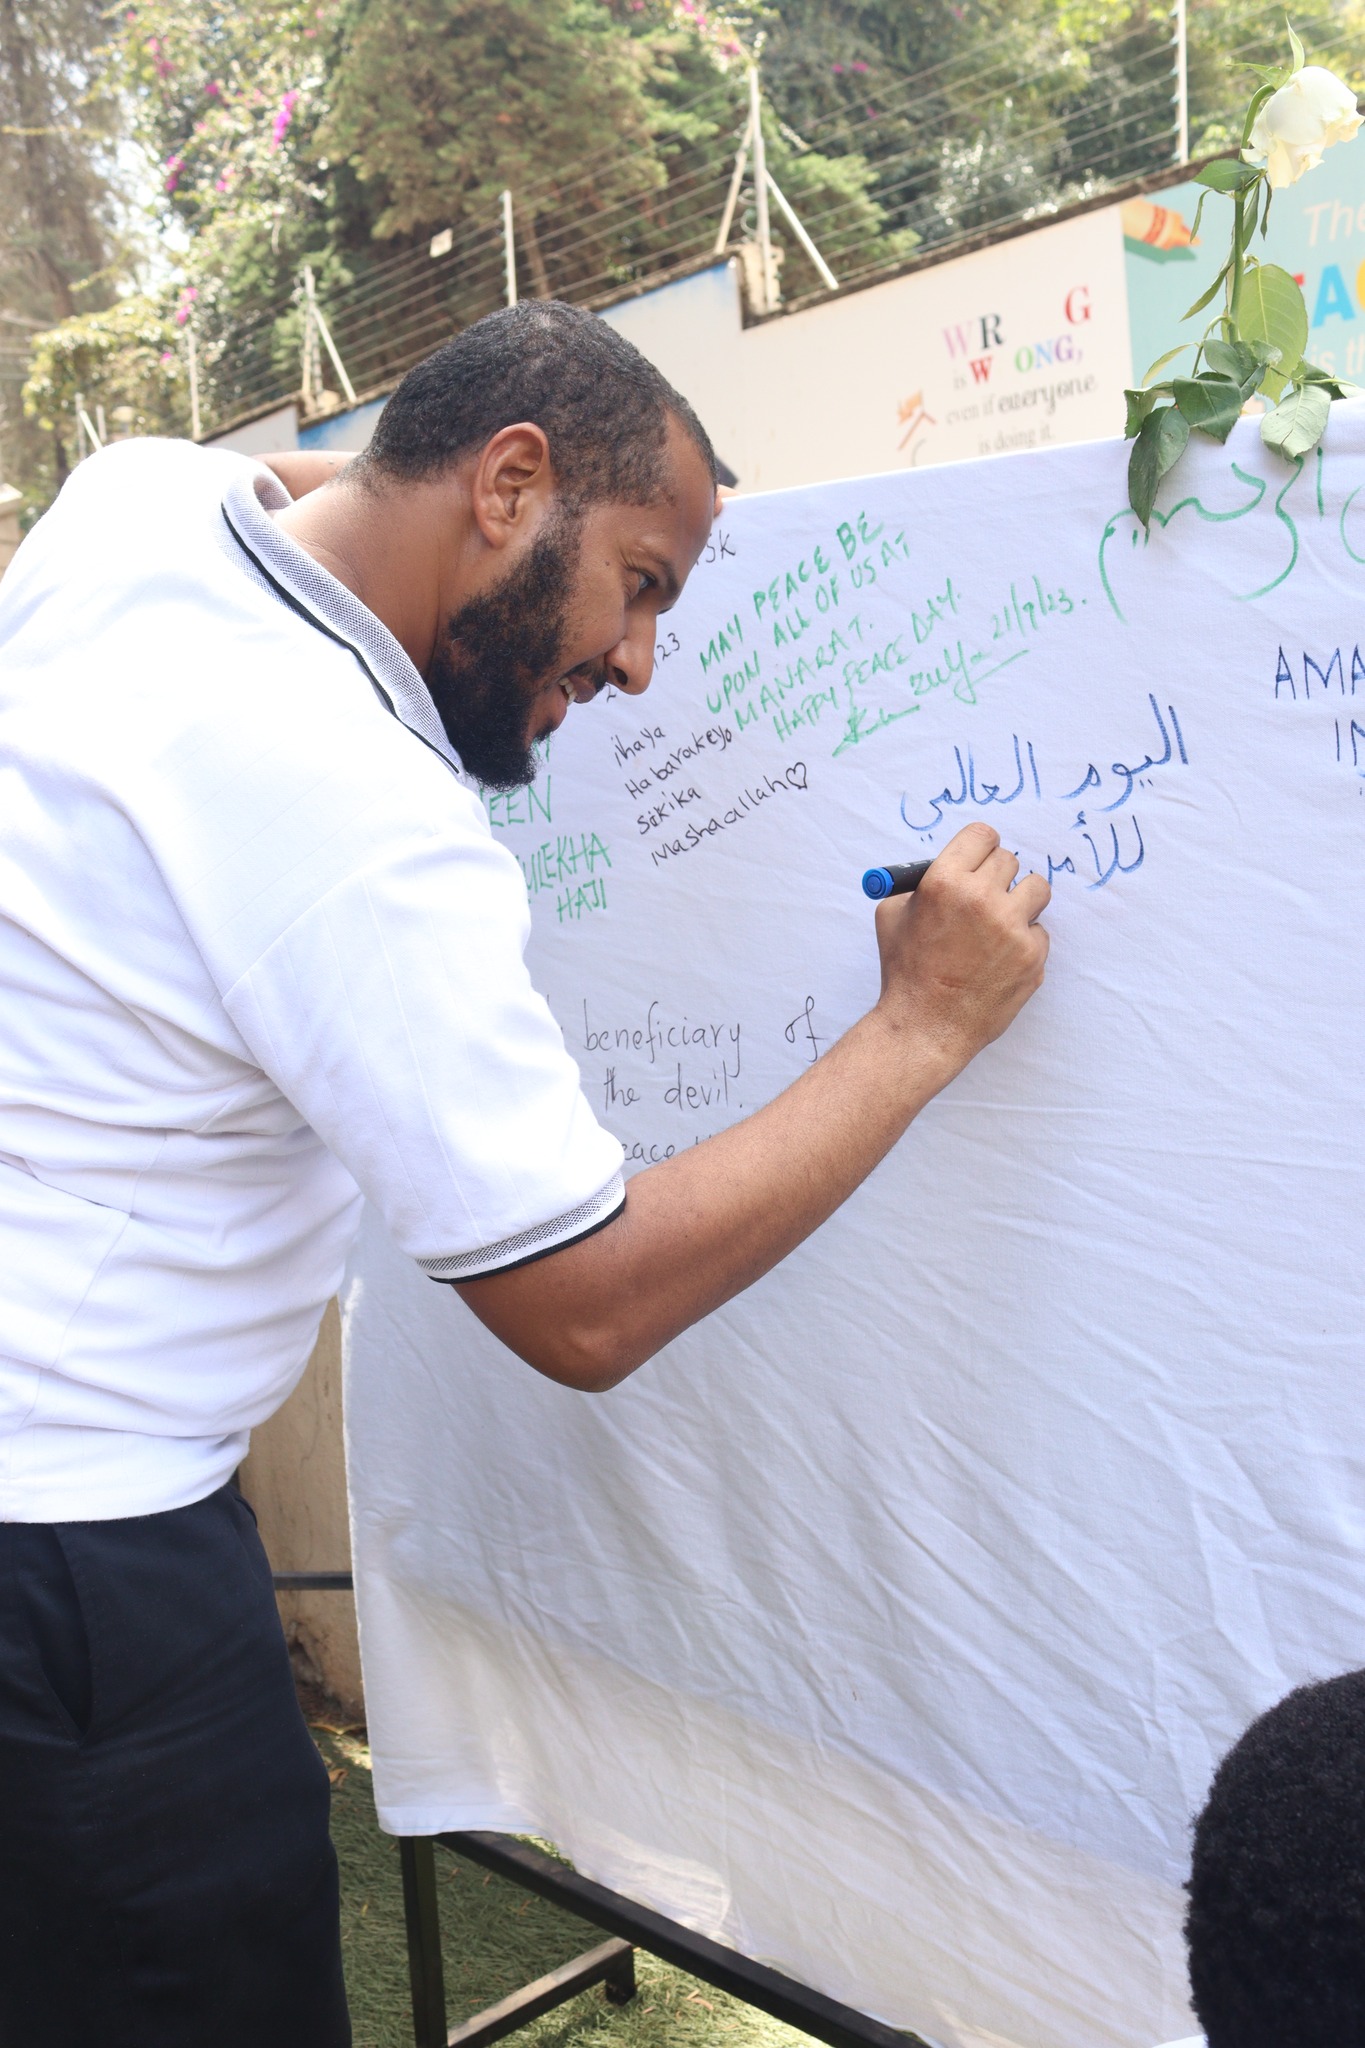 WR G
is W ONG,
even if everyone
is doing it.
The
is th
SK
MAY PEACE BE
UPON ALL OF US AT
MANARAT.
HAPPY PEACE DAY.
21/9/23.
23
ihaya
Habarakeyo
sikika
Mashaallah♡
EEN
ULEKHA
HAJI
الرحيم
اليوم العالمي
للأمن
AMA
IN
beneficiary of
the devil.
eace